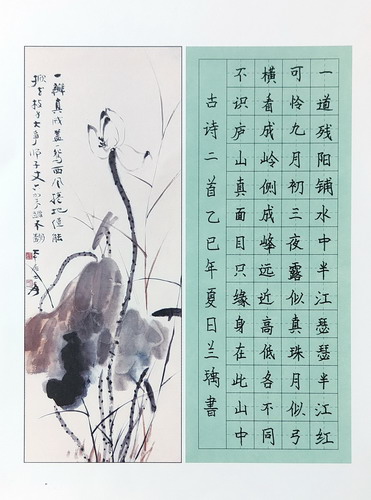 一道残阳铺水中半江瑟瑟半江红
可怜九月初三夜露似真珠月似弓
横看成岭侧成峰远近高低各不同
不识庐山真面目只缘身在此山中
古诗二首乙巳年夏日兰璃書
一瓣真成盖西风地